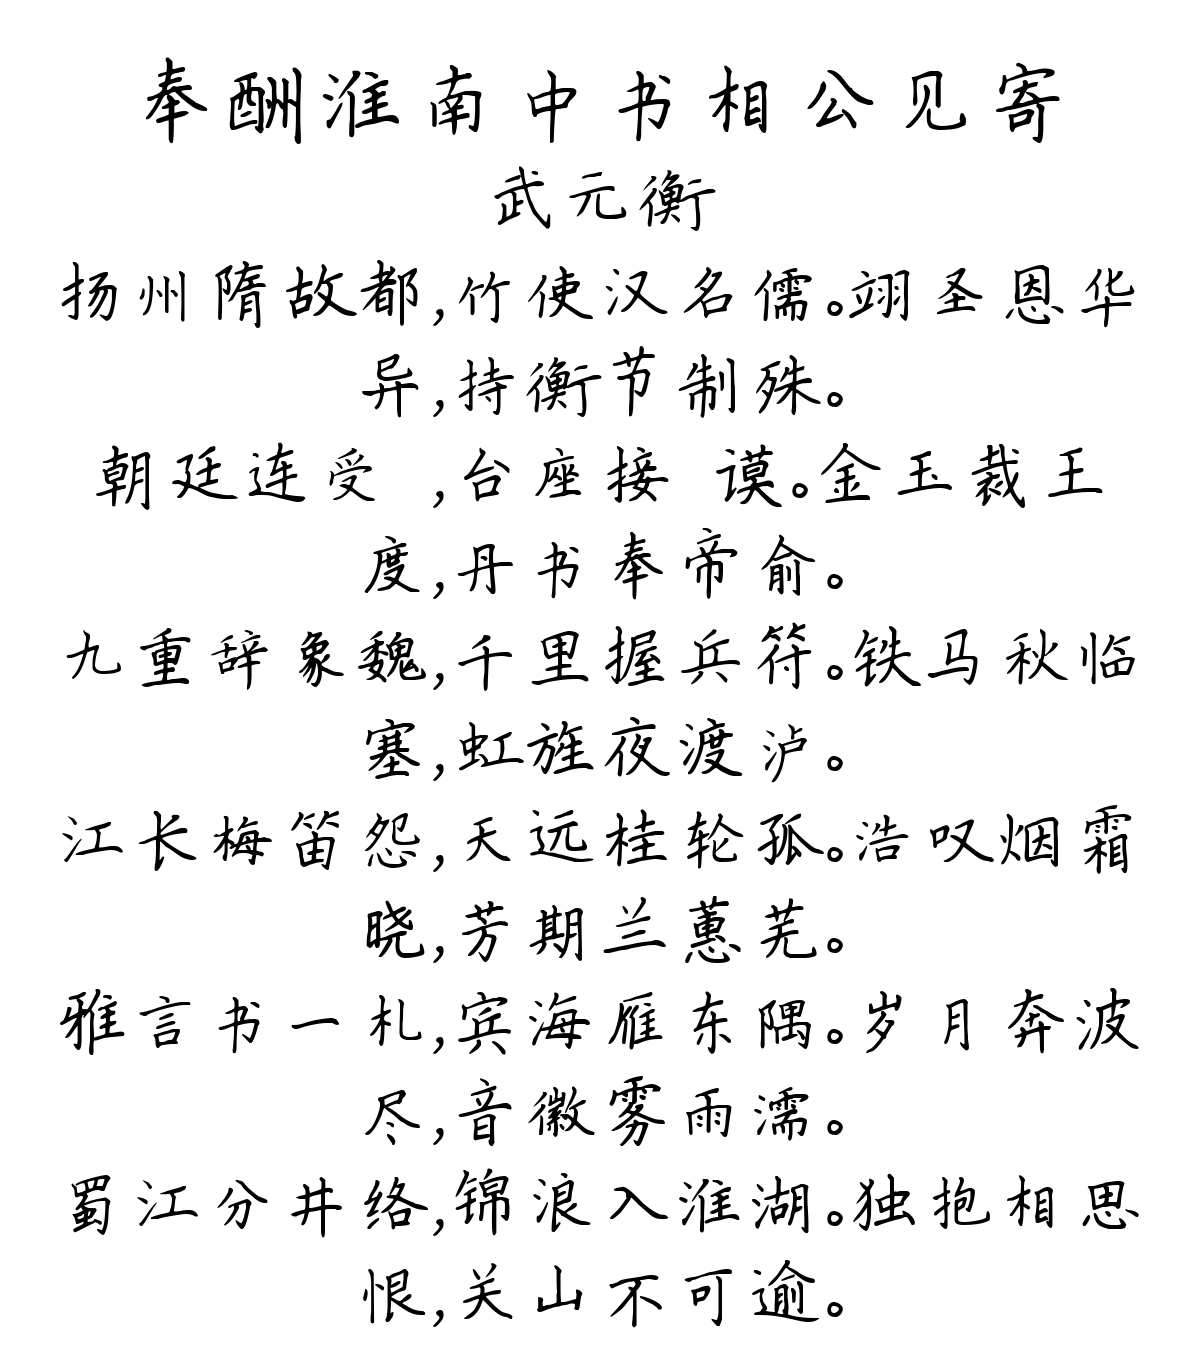 奉酬淮南中书相公见寄
武元衡
扬州隋故都,竹使汉名儒。翊圣恩华
异,持衡节制殊。
朝廷连受 ,台座接 谟。金玉裁王
度,丹书奉帝俞。
九重辞象魏,千里握兵符。铁马秋临
塞,虹旌夜渡泸。
江长梅笛怨,天远桂轮孤。浩叹烟霜
晓,芳期兰蕙芜。
雅言书一札,宾海雁东隅。岁月奔波
尽,音徽雾雨濡。
蜀江分井络,锦浪入淮湖。独抱相思
恨,关山不可逾。